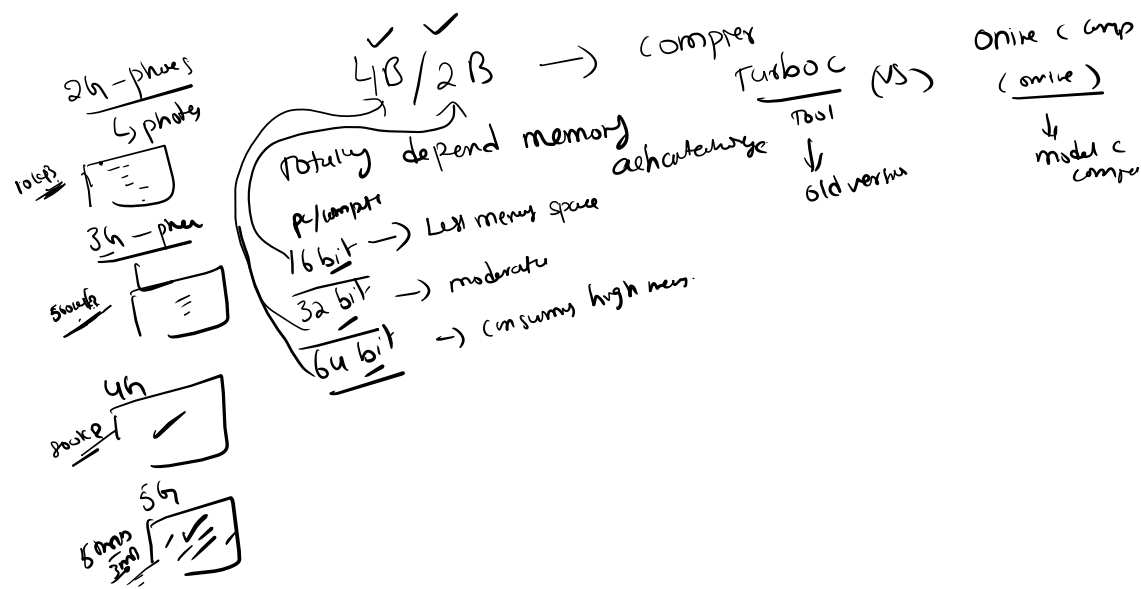 2G - phoes
↳ photos
10kB
3G - phoen
500kB
4G
800kB
5G
5mbs
3mb
4B / 2B → compier
Totully depend memory
pc/compte
16 bit → Less memory space
32 bit → moderate
64 bit → consumes high mem.
Turbo C (vs)
Tool
↓
old version
Onine C comp
(onine)
↓
model C